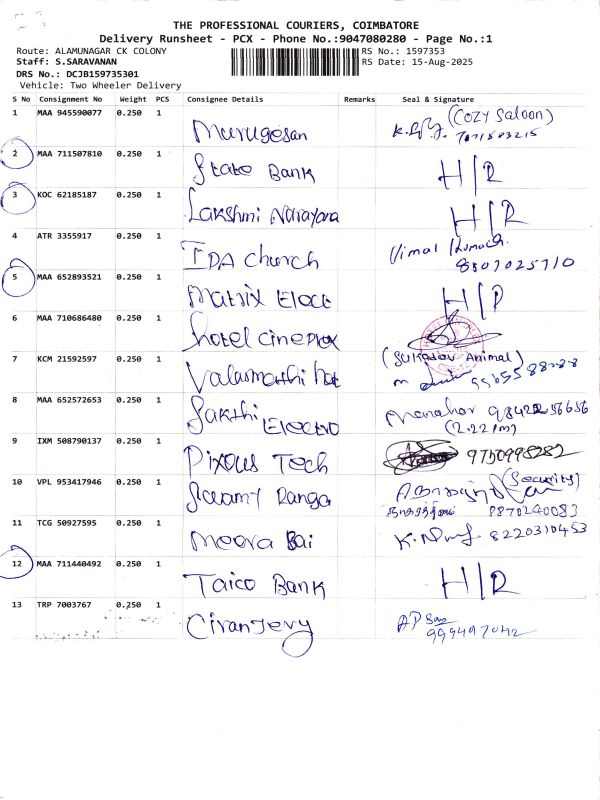 THE PROFESSIONAL COURIERS, COIMBATORE
Delivery Runsheet - PCX - Phone No.:9047080280 - Page No.:1
Route: ALAMUNAGAR CK COLONY
RS No.: 1597353
Staff: S.SARAVANAN
RS Date: 15-Aug-2025
DRS No.: DCJB159735301
Vehicle: Two Wheeler Delivery
S No Consignment No Weight PCS Consignee Details Remarks Seal & Signature
1 MAA 945590077 0.250 1 Murugesan (COZY Saloon)
2 MAA 711507810 0.250 1 State Bank H/R
3 KOC 62185187 0.250 1 Lakshmi Narayana H/R
4 ATR 3355917 0.250 1 IPA Church Vimal Kumar
8807025710
5 MAA 652893521 0.250 1 Matrix Elect H/R
6 MAA 710686480 0.250 1 hotel cineprx
7 KCM 21592597 0.250 1 Valarmathi (Sukadev Animal)
8 MAA 652572653 0.250 1 Sakthi Electro Manahar 98422 56656
(2.22 pm)
9 IXM 508790137 0.250 1 Pixous Tech 9750998282
10 VPL 953417946 0.250 1 Swamy Ranga (Security)
9870240083
11 TCG 50927595 0.250 1 Meera Bai 8220310453
12 MAA 711440492 0.250 1 Taico Bank H/R
13 TRP 7003767 0.250 1 Ciranjevy